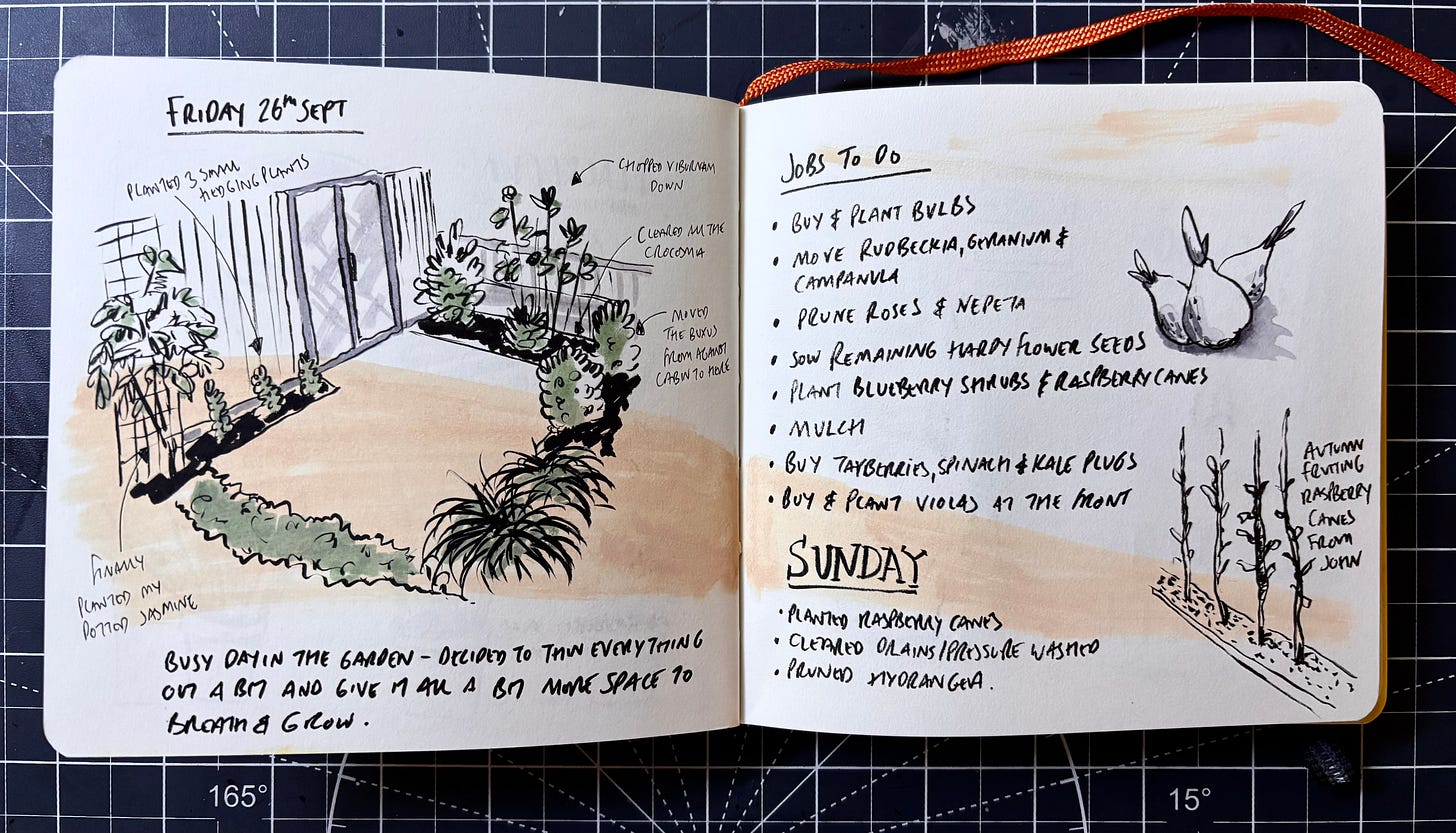 FRIDAY 26TH SEPT
PLANTED 3 SMALL
HEDGING PLANTS
CHOPPED VIBURNAM
DOWN
CLEARED ALL THE
CROCOSMIA
MOVED
THE BUXUS
FROM AGAINST
CABIN TO HERE
FINALLY
PLANTED MY
POTTED JASMINE
BUSY DAY IN THE GARDEN - DECIDED TO THIN EVERYTHING
OUT A BIT AND GIVE IT ALL A BIT MORE SPACE TO
BREATH & GROW.
JOBS TO DO
• BUY & PLANT BULBS
• MOVE RUDBECKIA, GERANIUM &
CAMPANULA
• PRUNE ROSES & NEPETA
• SOW REMAINING HARDY FLOWER SEEDS
• PLANT BLUEBERRY SHRUBS & RASPBERRY CANES
• MULCH
• BUY TAYBERRIES, SPINACH & KALE PLUGS
• BUY & PLANT VIOLAS AT THE FRONT
AUTUMN
FRUITING
RASPBERRY
CANES
FROM
JOHN
SUNDAY
• PLANTED RASPBERRY CANES
• CLEARED DRAINS/PRESSURE WASHED
• PRUNED HYDRANGEA.
165°
15°